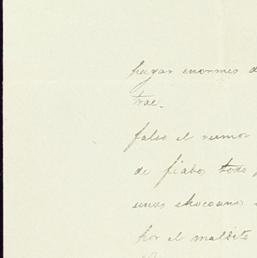 pagar enormes d
trae.
falso el rumor
de fiabos todo
unos chocoanos
por el maldito